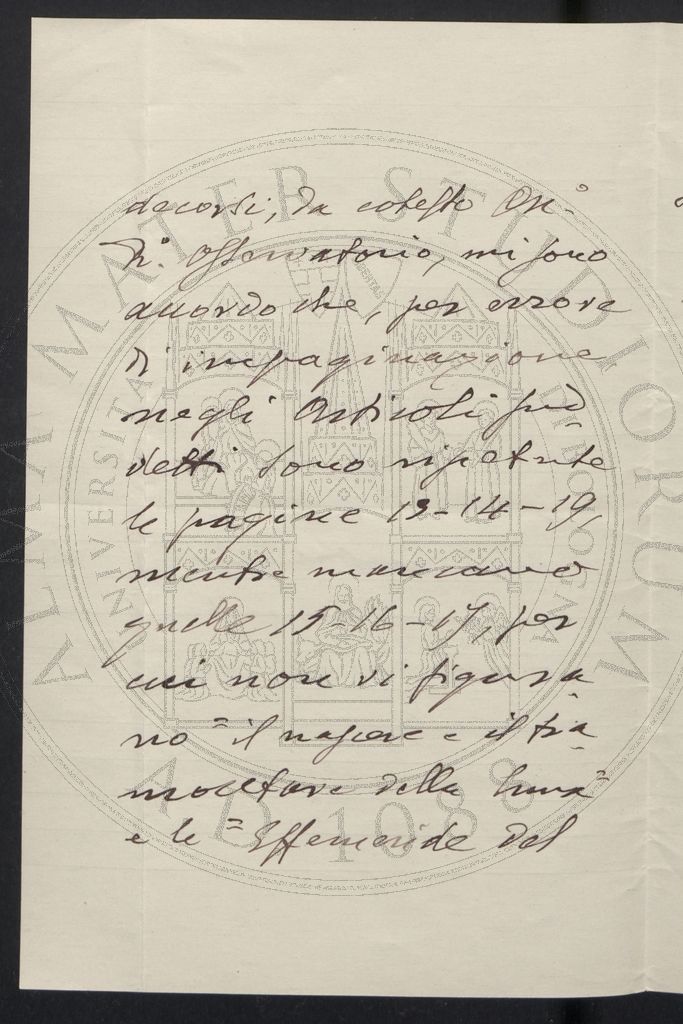 decorsi, da cotesto On.°
R.° Osservatorio, mi sono
accordo che, per errore
di impaginazione,
negli Articoli pre-
detti sono ripetute
le pagine 13-14-19,
mentre mancano
quelle 15-16-17, per
cui non vi figura-
no = il nascere e il tra-
montare della luna =
e le = Effemeride del
ALMA MATER STUDIORUM
A.D. 1088